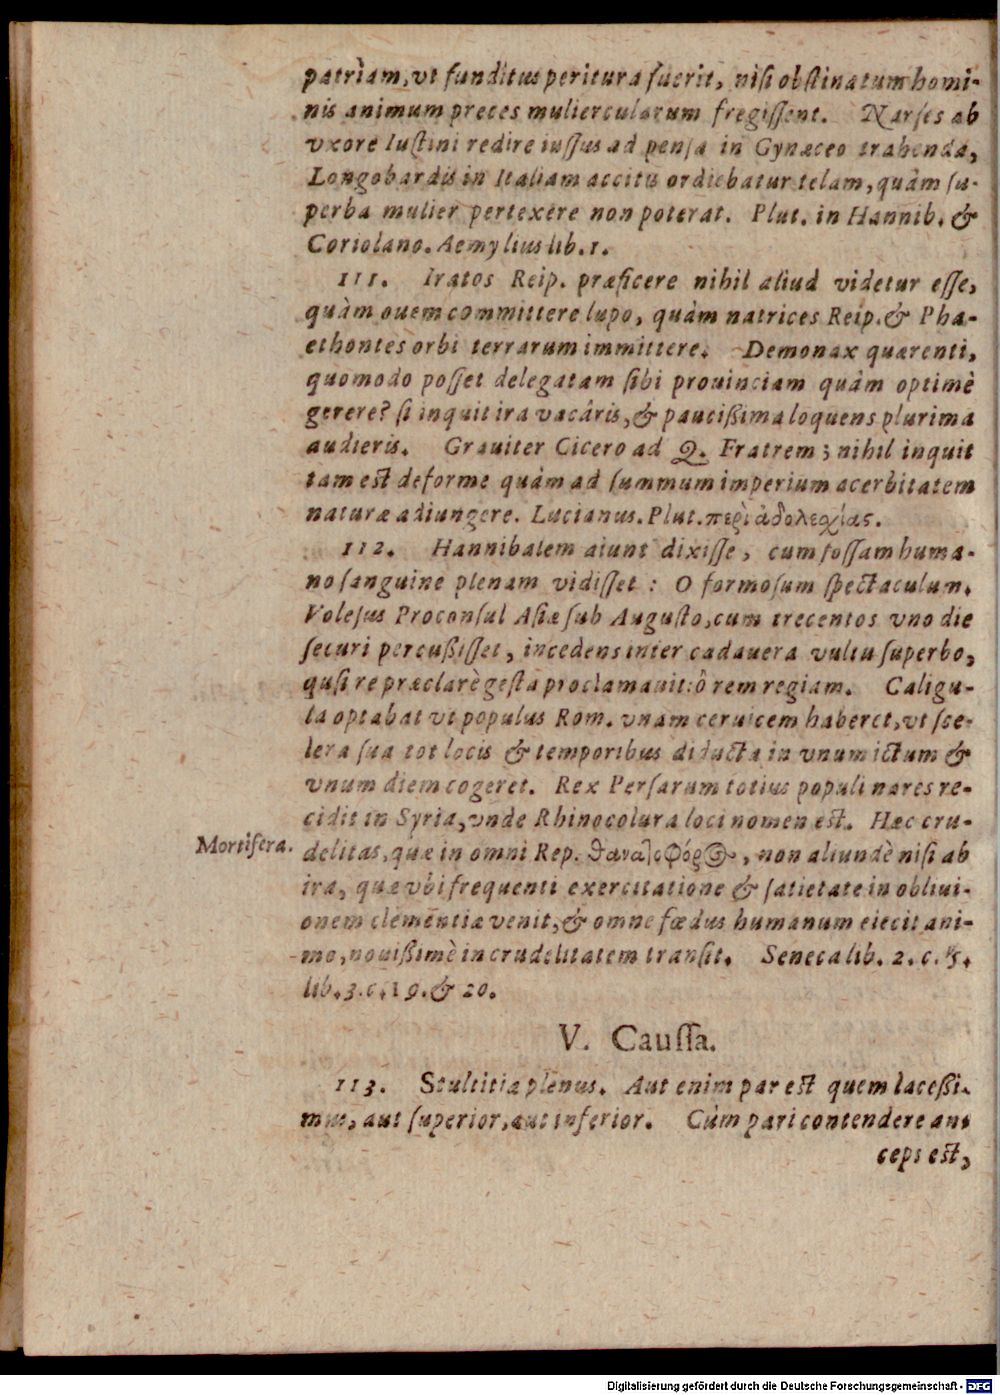 patrìam, vt funditus peritura fuerit, nisi obstinatum homi-
nis animum preces muliercularum fregissent. Narses ab
vxore Iustini redire iussus ad pensa in Gynæceo trahenda,
Longobardis in Italiam accitis ordiebatur telam, quàm su-
perba mulier pertexere non poterat. Plut. in Hannib. &
Coriolano. Aemylius lib. 1.
111. Iratos Reip. præficere nihil aliud videtur esse,
quàm ouem committere lupo, quàm natrices Reip. & Pha-
ethontes orbi terrarum immittere. Demonax quærenti,
quomodo posset delegatam sibi prouinciam quàm optimè
gerere? si inquit ira vacâris, & paucißima loquens plurima
audieris. Grauiter Cicero ad Q. Fratrem; nihil inquit
tam est deforme quàm ad summum imperium acerbitatem
naturæ adiungere. Lucianus. Plut. περὶ ἀδολεσχίας.
112. Hannibalem aiunt dixisse, cum fossam huma-
no sanguine plenam vidisset: O formosum spectaculum.
Volesus Proconsul Asiæ sub Augusto, cum trecentos vno die
securi percußisset, incedens inter cadauera vultu superbo,
qusi re præclarè gesta proclamauit: ô rem regiam. Caligu-
la optabat vt populus Rom. vnam ceruicem haberet, vt sce-
lera sua tot locis & temporibus diducta in vnum ictum &
vnum diem cogeret. Rex Persarum totius populi nares re-
cidit in Syria, vnde Rhinocolura loci nomen est. Hæc cru-
Mortifera.
delitas, quæ in omni Rep. θανατοφόρος, non aliundè nisi ab
ira, quæ vbi frequenti exercitatione & satietate in obliui-
onem clementiæ venit, & omne fœdus humanum eiecit ani-
mo, nouißimè in crudelitatem transit. Seneca lib. 2. c. 5.
lib. 3. c. 19. & 20.
V. Caussa.
113. Stultitiæ plenus. Aut enim par est quem laceßi-
mus, aut superior, aut inferior. Cùm pari contendere an-
ceps est,
Digitalisierung gefördert durch die Deutsche Forschungsgemeinschaft - DFG